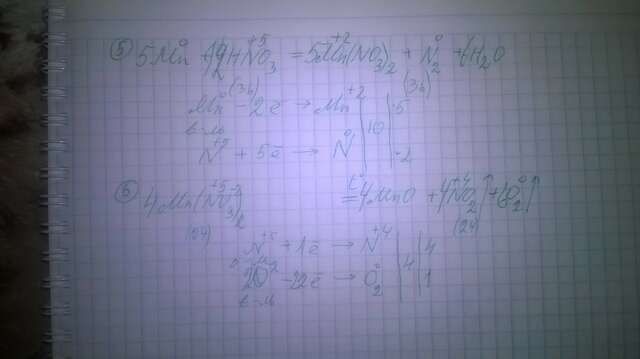 ⑤ 5Mn⁰ + 12HN⁺⁵O₃ = 5Mn⁺²(NO₃)₂ + N₂⁰ + 6H₂O
(36) (36)
Mn⁰ - 2ē → Mn⁺² | | 5
в-ль | 10 |
N⁺⁵ + 5ē → N⁰ | | 2
⑥ 4Mn(N⁺⁵O₃⁻²)₂ =t° 4MnO + 4N⁺⁴O₂↑ + O₂⁰↑
(24) (24)
N⁺⁵ + 1ē → N⁺⁴ | | 4
2O⁻² - 22ē → O₂⁰ | 4 | 1
в-ль